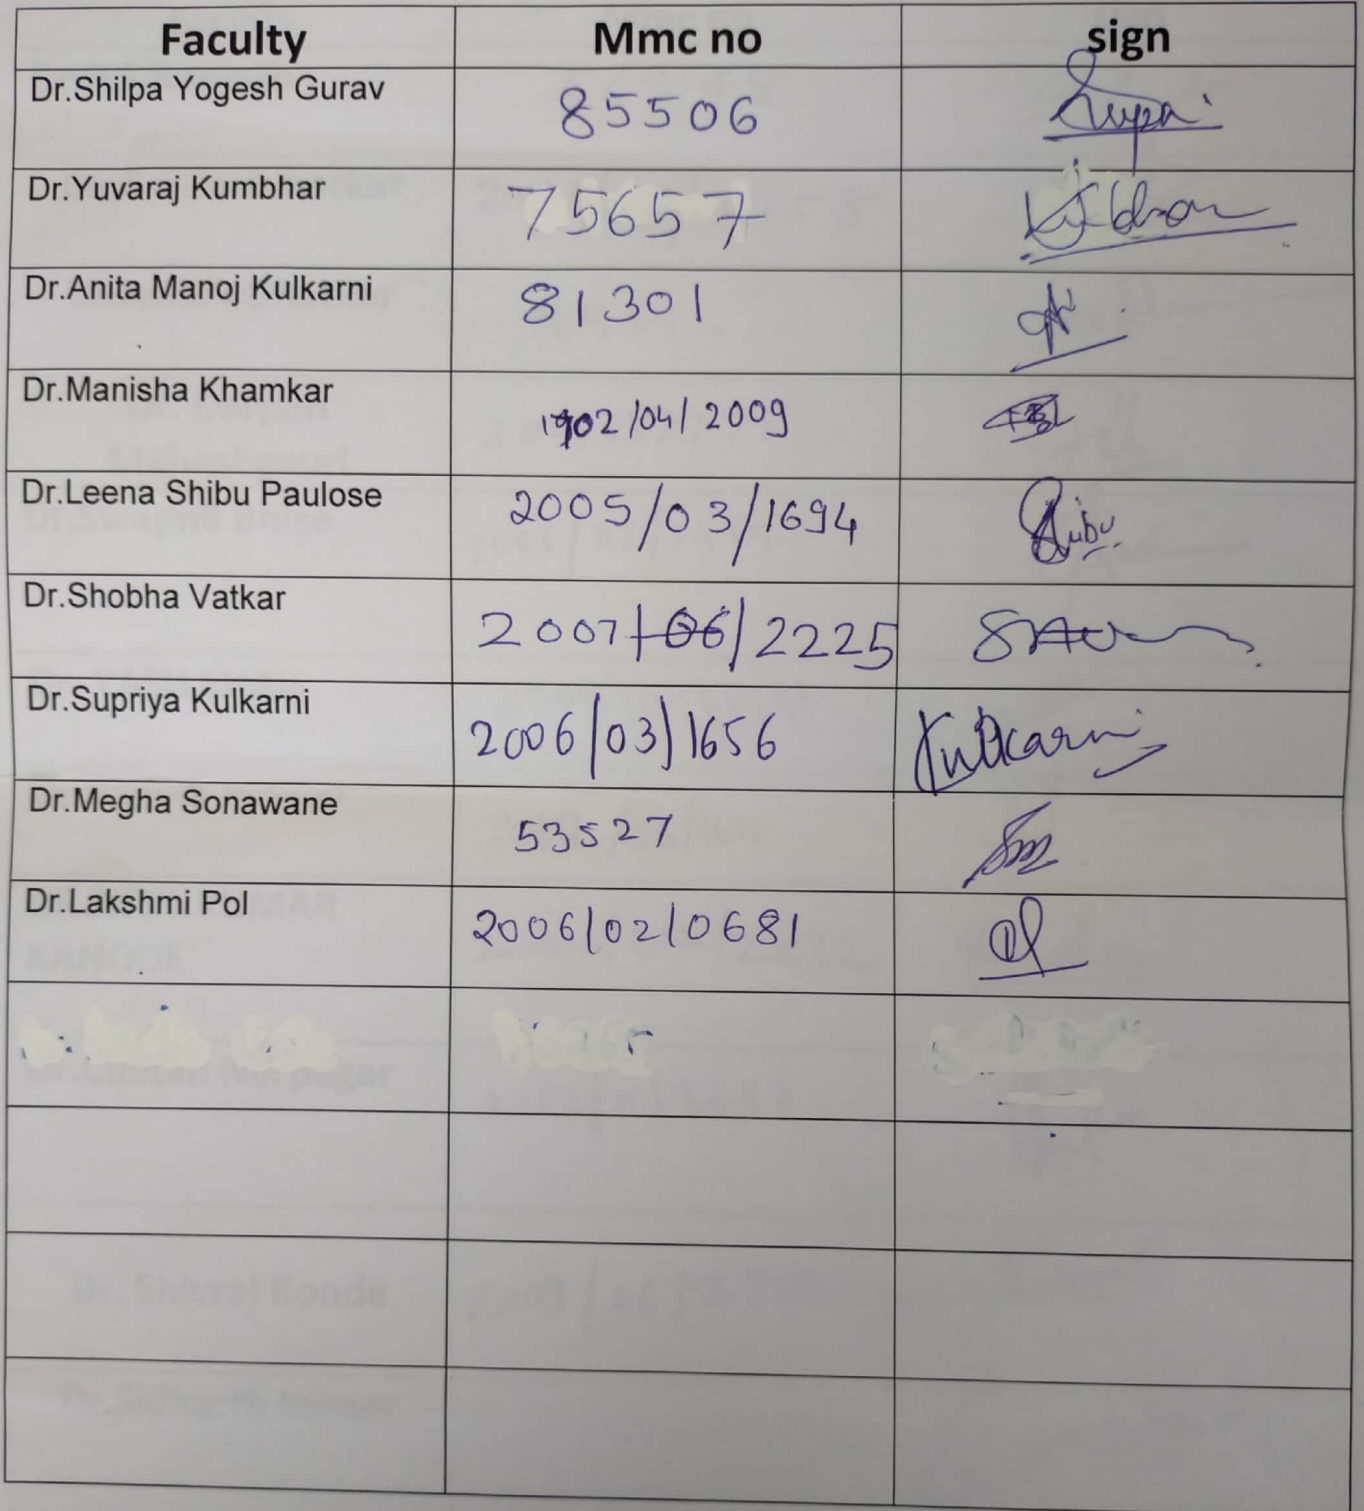 Faculty Mmc no sign
Dr.Shilpa Yogesh Gurav 85506
Dr.Yuvaraj Kumbhar 75657
Dr.Anita Manoj Kulkarni 81301
Dr.Manisha Khamkar 02/04/2009
Dr.Leena Shibu Paulose 2005/03/1694 Shibu
Dr.Shobha Vatkar 2007/06/2225
Dr.Supriya Kulkarni 2006/03/1656 Kulkarni
Dr.Megha Sonawane 53527
Dr.Lakshmi Pol 2006/02/0681